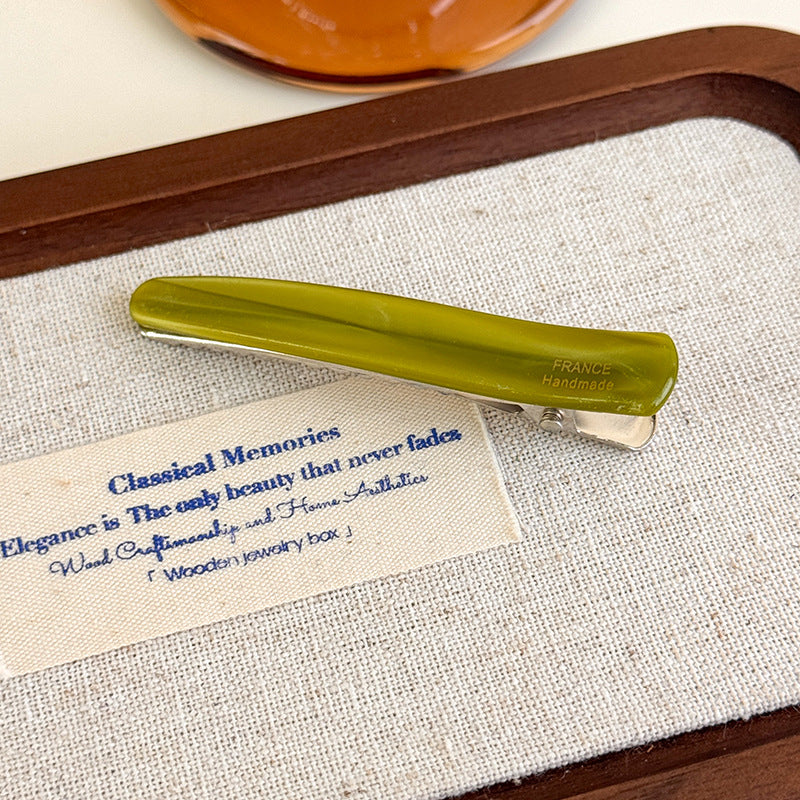 FRANCE
Handmade
Classical Memories
Elegance is The only beauty that never fades
Wood Craftsmanship and Home Aesthetics
「 Wooden jewelry box 」